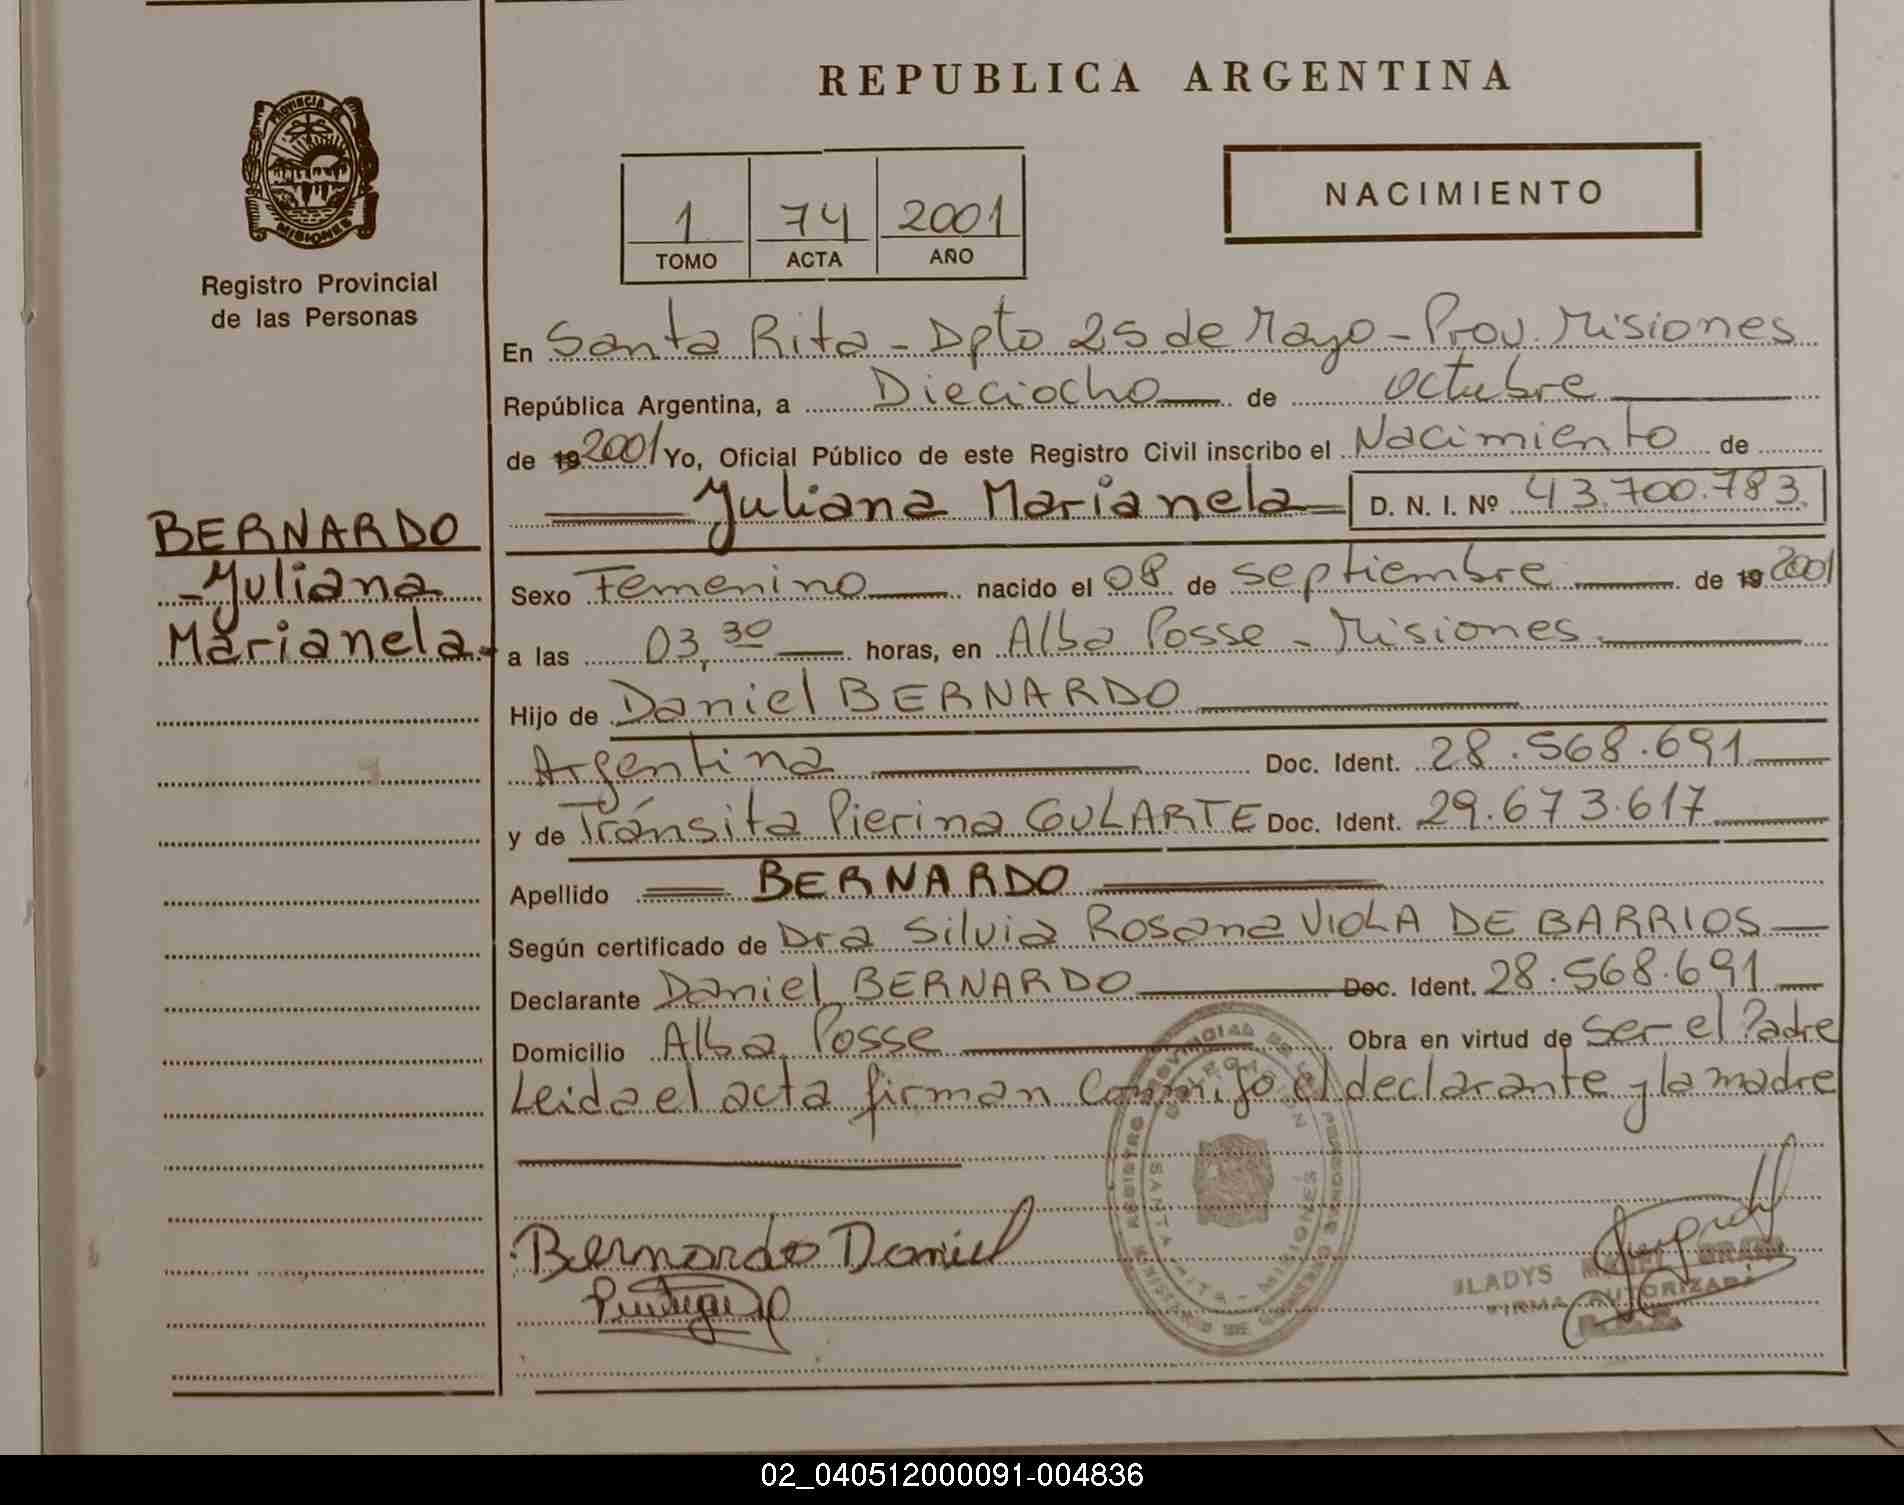 REPUBLICA ARGENTINA
PROVINCIA DE
MISIONES
Registro Provincial
de las Personas
1 74 2001
TOMO ACTA AÑO
NACIMIENTO
En Santa Rita - Dpto 25 de Mayo - Prov. Misiones
República Argentina, a Dieciocho de octubre
de 19 2001 Yo, Oficial Público de este Registro Civil inscribo el Nacimiento de
Yuliana Marianela D. N. I. Nº 43.700.783.
BERNARDO
- Yuliana
Marianela.-
Sexo Femenino nacido el 08 de septiembre de 19 2001
a las 03,30 horas, en Alba Posse - Misiones
Hijo de Daniel BERNARDO
Argentina Doc. Ident. 28.568.691
y de Tránsita Pierina GULARTE Doc. Ident. 29.673.617
Apellido BERNARDO
Según certificado de Dra Silvia Rosana VIOLA DE BARRIOS
Declarante Daniel BERNARDO Doc. Ident. 28.568.691
Domicilio Alba Posse Obra en virtud de ser el Padre
Leida el acta firman Conmigo el declarante y la madre
Bernardo Daniel
SANTA RITA - MISIONES
GLADYS
FIRMA AUTORIZADA
02_040512000091-004836